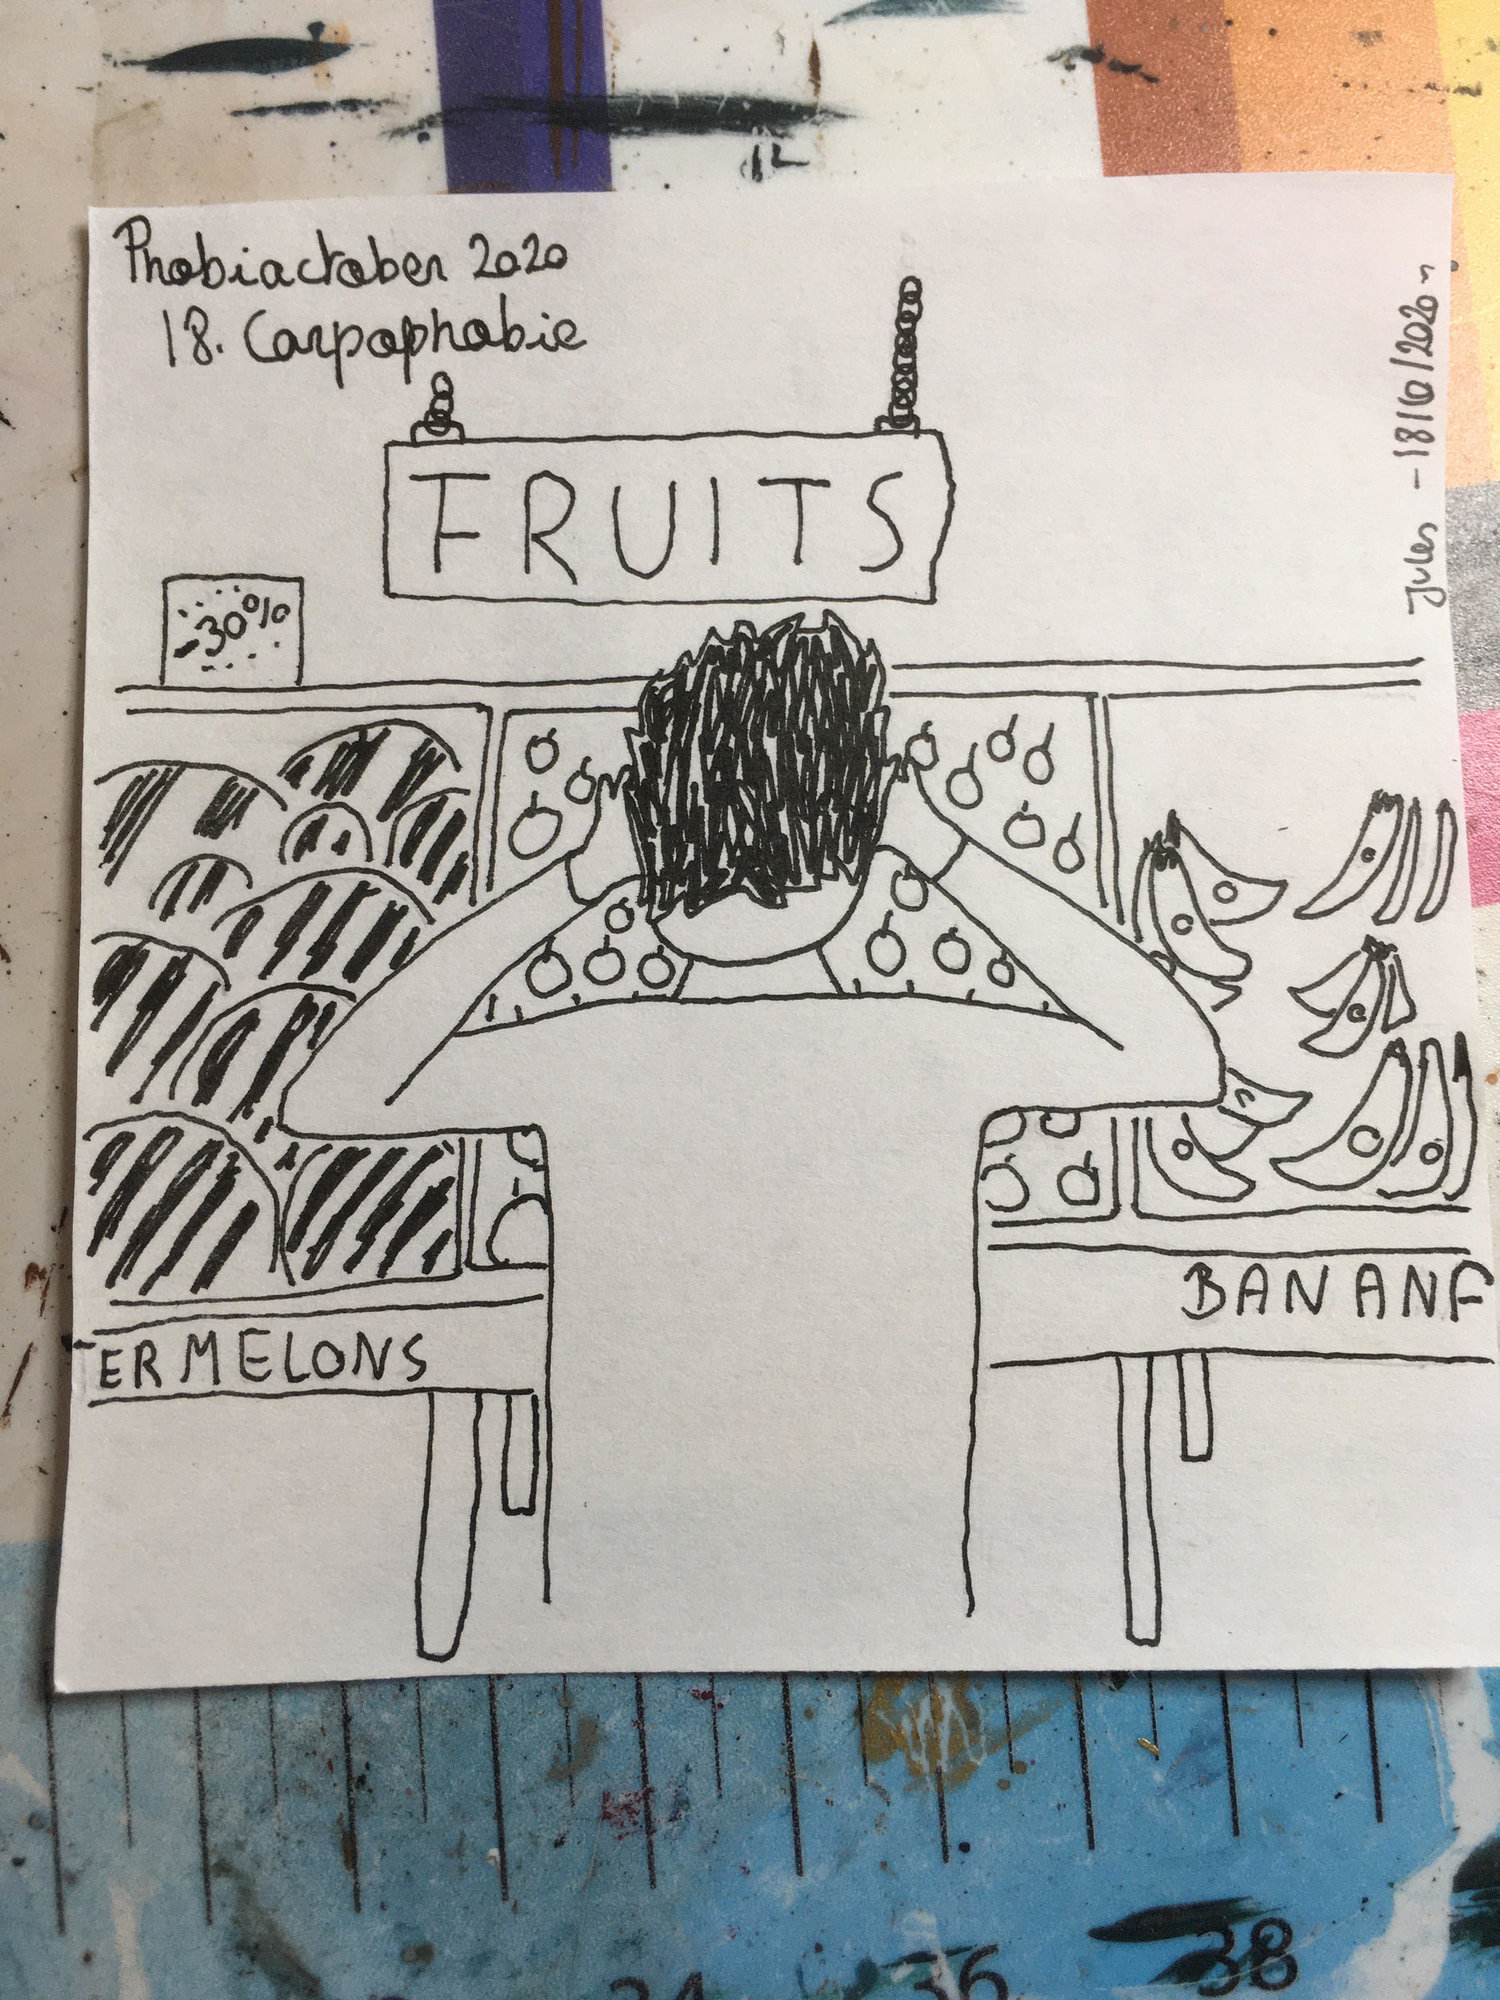 Phobiactober 2020
18. Carpophobie
Jules - 18/10/2020
FRUITS
-30%
ERMELONS
BANAN
36
38